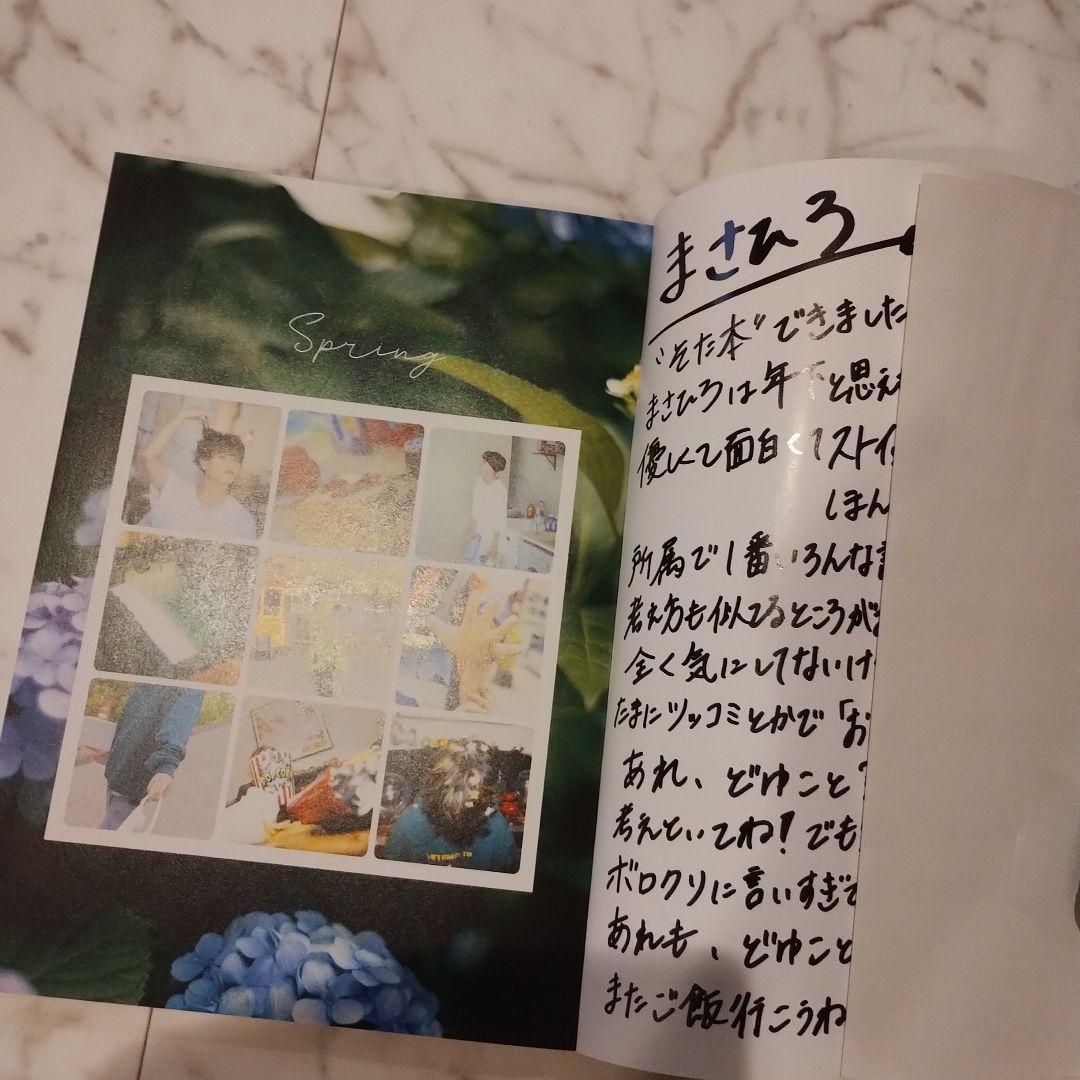 Spring
まさひろ
"そた本"できました
まさひろは年下と思え
優しくて面白くてストイ
しまん
所属で1番いろんな
考え方も似てるところが
全く気にしてないけ
たまにツッコミとかで「お
あれ、どゆこと?
考えといてね!でも
ボロクソに言いすぎて
あれも、どゆこと
またご飯行こうね